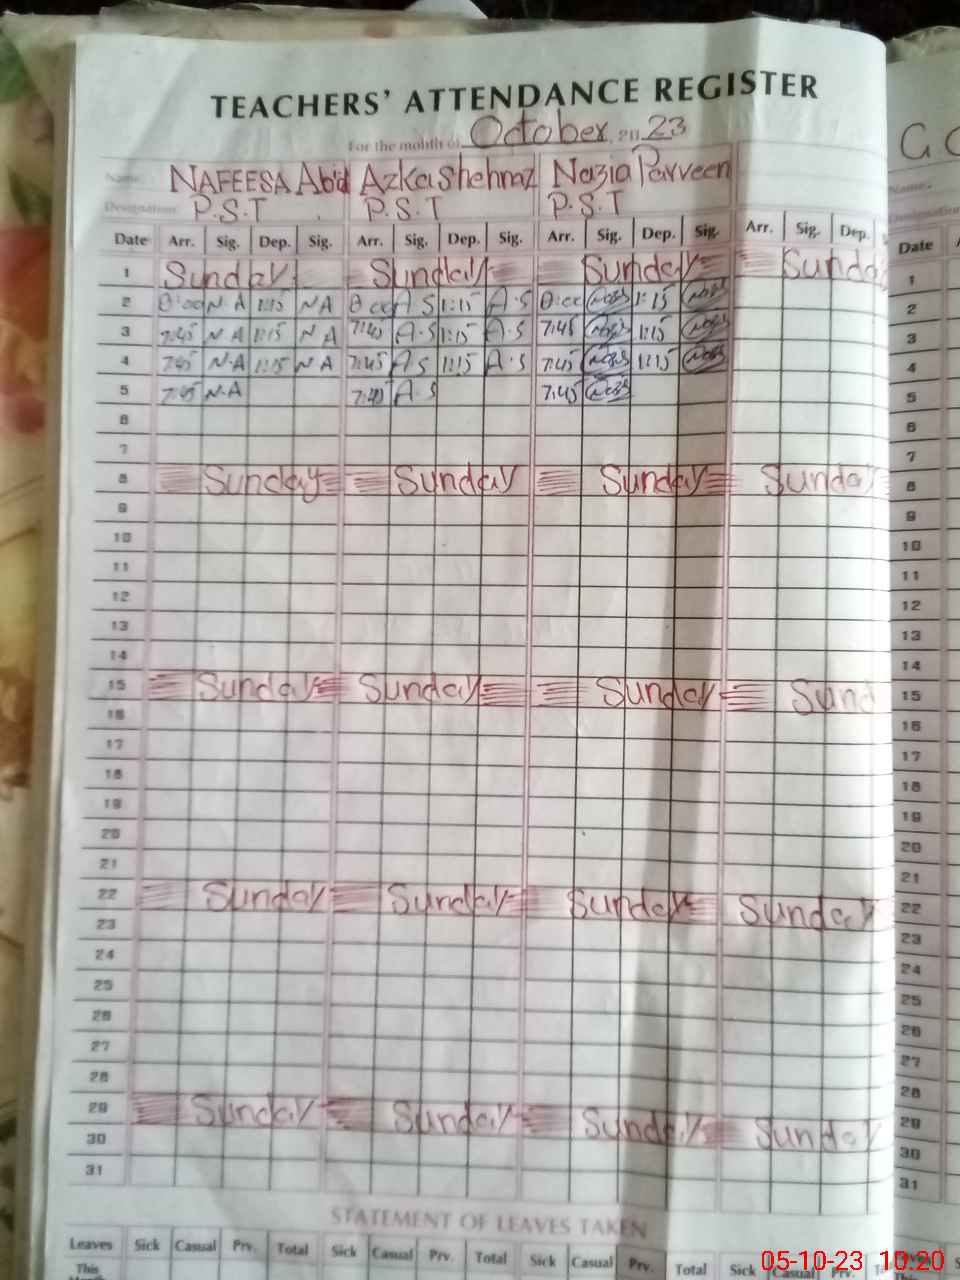 TEACHERS' ATTENDANCE REGISTER
For the month of October 2023
Name: NAFEESA Abid Azka Shehnaz Nazia Parveen
Designation: P.S.T P.S.T P.S.T
Date Arr. Sig. Dep. Sig. Arr. Sig. Dep. Sig. Arr. Sig. Dep. Sig. Arr. Sig. Dep.
1 Sunday Sunday Sunday Sunda
2 8:00 N A 1:15 N A 8:00 A S 1:15 A.S 8:00 1:15
3 7:45 N A 1:15 N A 7:40 A.S 1:15 A.S 7:45 1:15
4 7:45 N.A 1:15 N A 7:45 A S 1:15 A.S 7:45 1:15
5 7:45 N.A 7:40 A.S 7:45
6
7
8 Sunday Sunday Sunday Sunday
9
10
11
12
13
14
15 Sunday Sunday Sunday Sund
16
17
18
19
20
21
22 Sunday Sunday Sunday Sunday
23
24
25
26
27
28
29 Sunday Sunday Sunday Sunday
30
31
STATEMENT OF LEAVES TAKEN
Leaves Sick Casual Prv. Total Sick Casual Prv. Total Sick Casual Prv. Total Sick Casual Prv.
This
G
Name.
Designation
Date
1
2
3
4
5
6
7
8
9
10
11
12
13
14
15
16
17
18
19
20
21
22
23
24
25
26
27
28
29
30
31
05-10-23 10:20